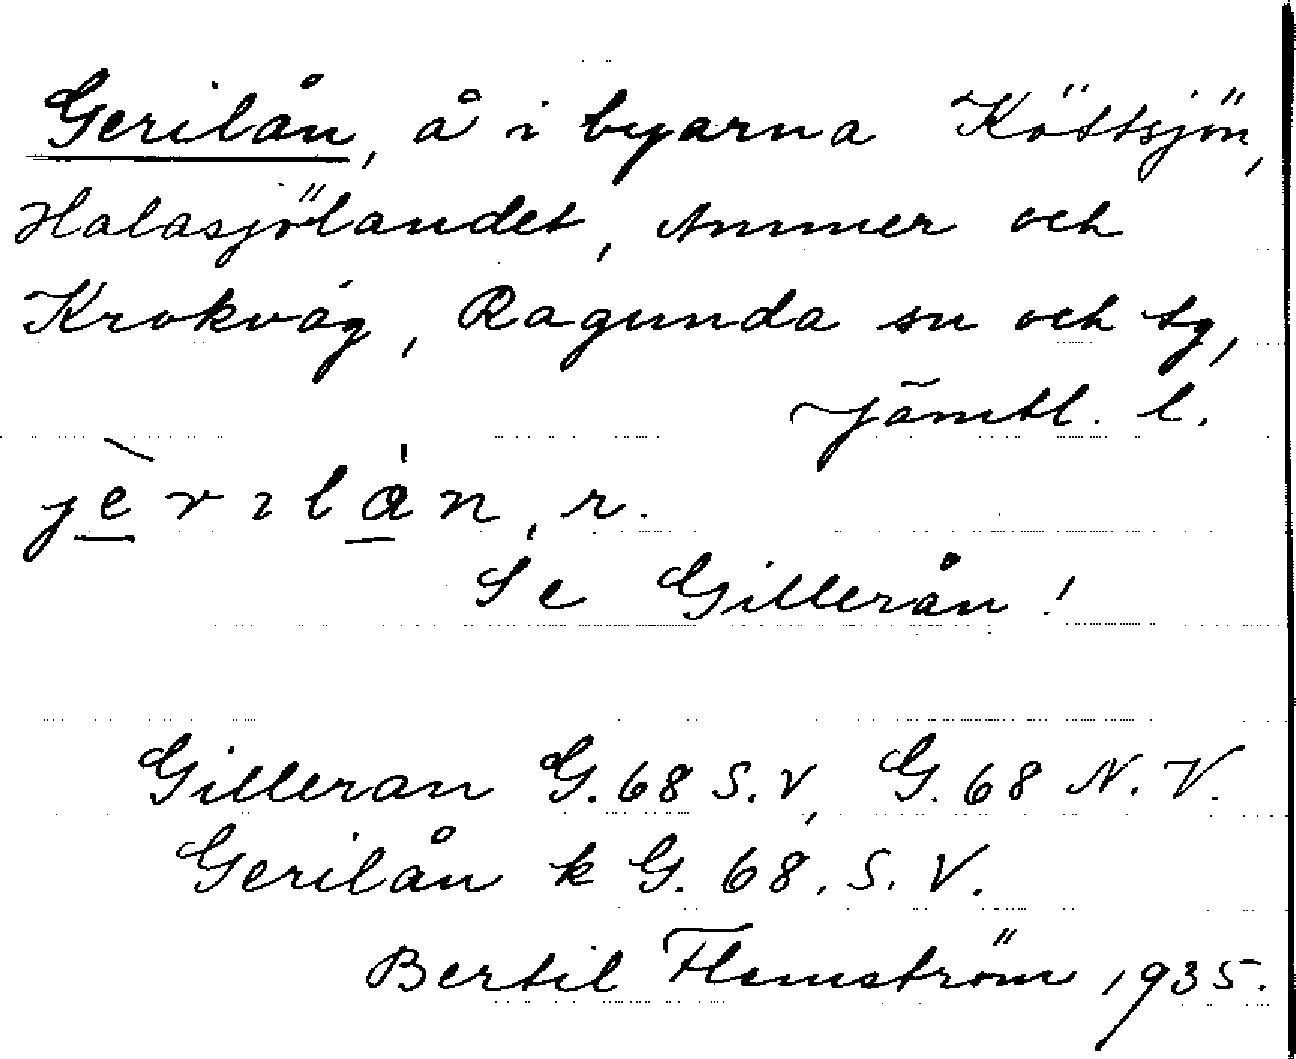 Gerilån, å i byarna Köttsjön,
Halasjölandet, Ammer och
Krokvåg, Ragunda sn och tg,
Jämtl. l.
jèrılån, r.
Se Gillerån!
Gilleran G. 68 S. V, G. 68 N. V.
Gerilån k G. 68. S. V.
Bertil Flemström 1935.